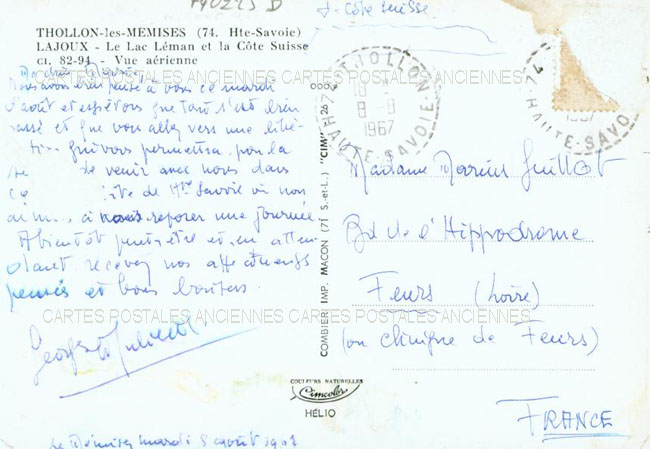 THOLLON-les-MEMISES (74. Hte-Savoie)
LAJOUX - Le Lac Léman et la Côte Suisse
CI. 82-94 - Vue aérienne
Côte Suisse
Nous avons bien pensé à vous ce mardi
août et espérons que tout s'est bien
passé et que vous allez vers une
qui vous permettra
de venir avec nous dans
de Hte Savoie où nous
à nous reposer une journée
A bientôt peut-être et en atten-
dant recevez nos affectueuses
pensées et bons baisers
CARTES POSTALES ANCIENNES CARTES POSTALES ANCIENNES CARTES POSTALES ANCIENNES
CARTES POSTALES ANCIENNES CARTES POSTALES ANCIENNES CARTES POSTALES ANCIENNES
mardi 8 août 1967
COMBIER IMP. MACON (71 S.-et-L.) "CIM"
COULEURS NATURELLES
Cimcolor
HÉLIO
THOLLON
18
8-8
1967
HAUTE-SAVOIE
74
1967
HAUTE-SAVO
Madame Marius Guillot
Bd de l'Hippodrome
Feurs (Loire)
(ou clinique de Feurs)
FRANCE